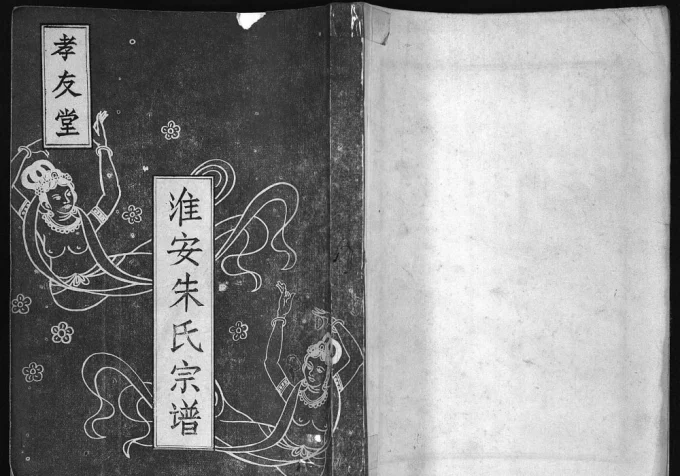 孝友堂
淮安朱氏宗谱